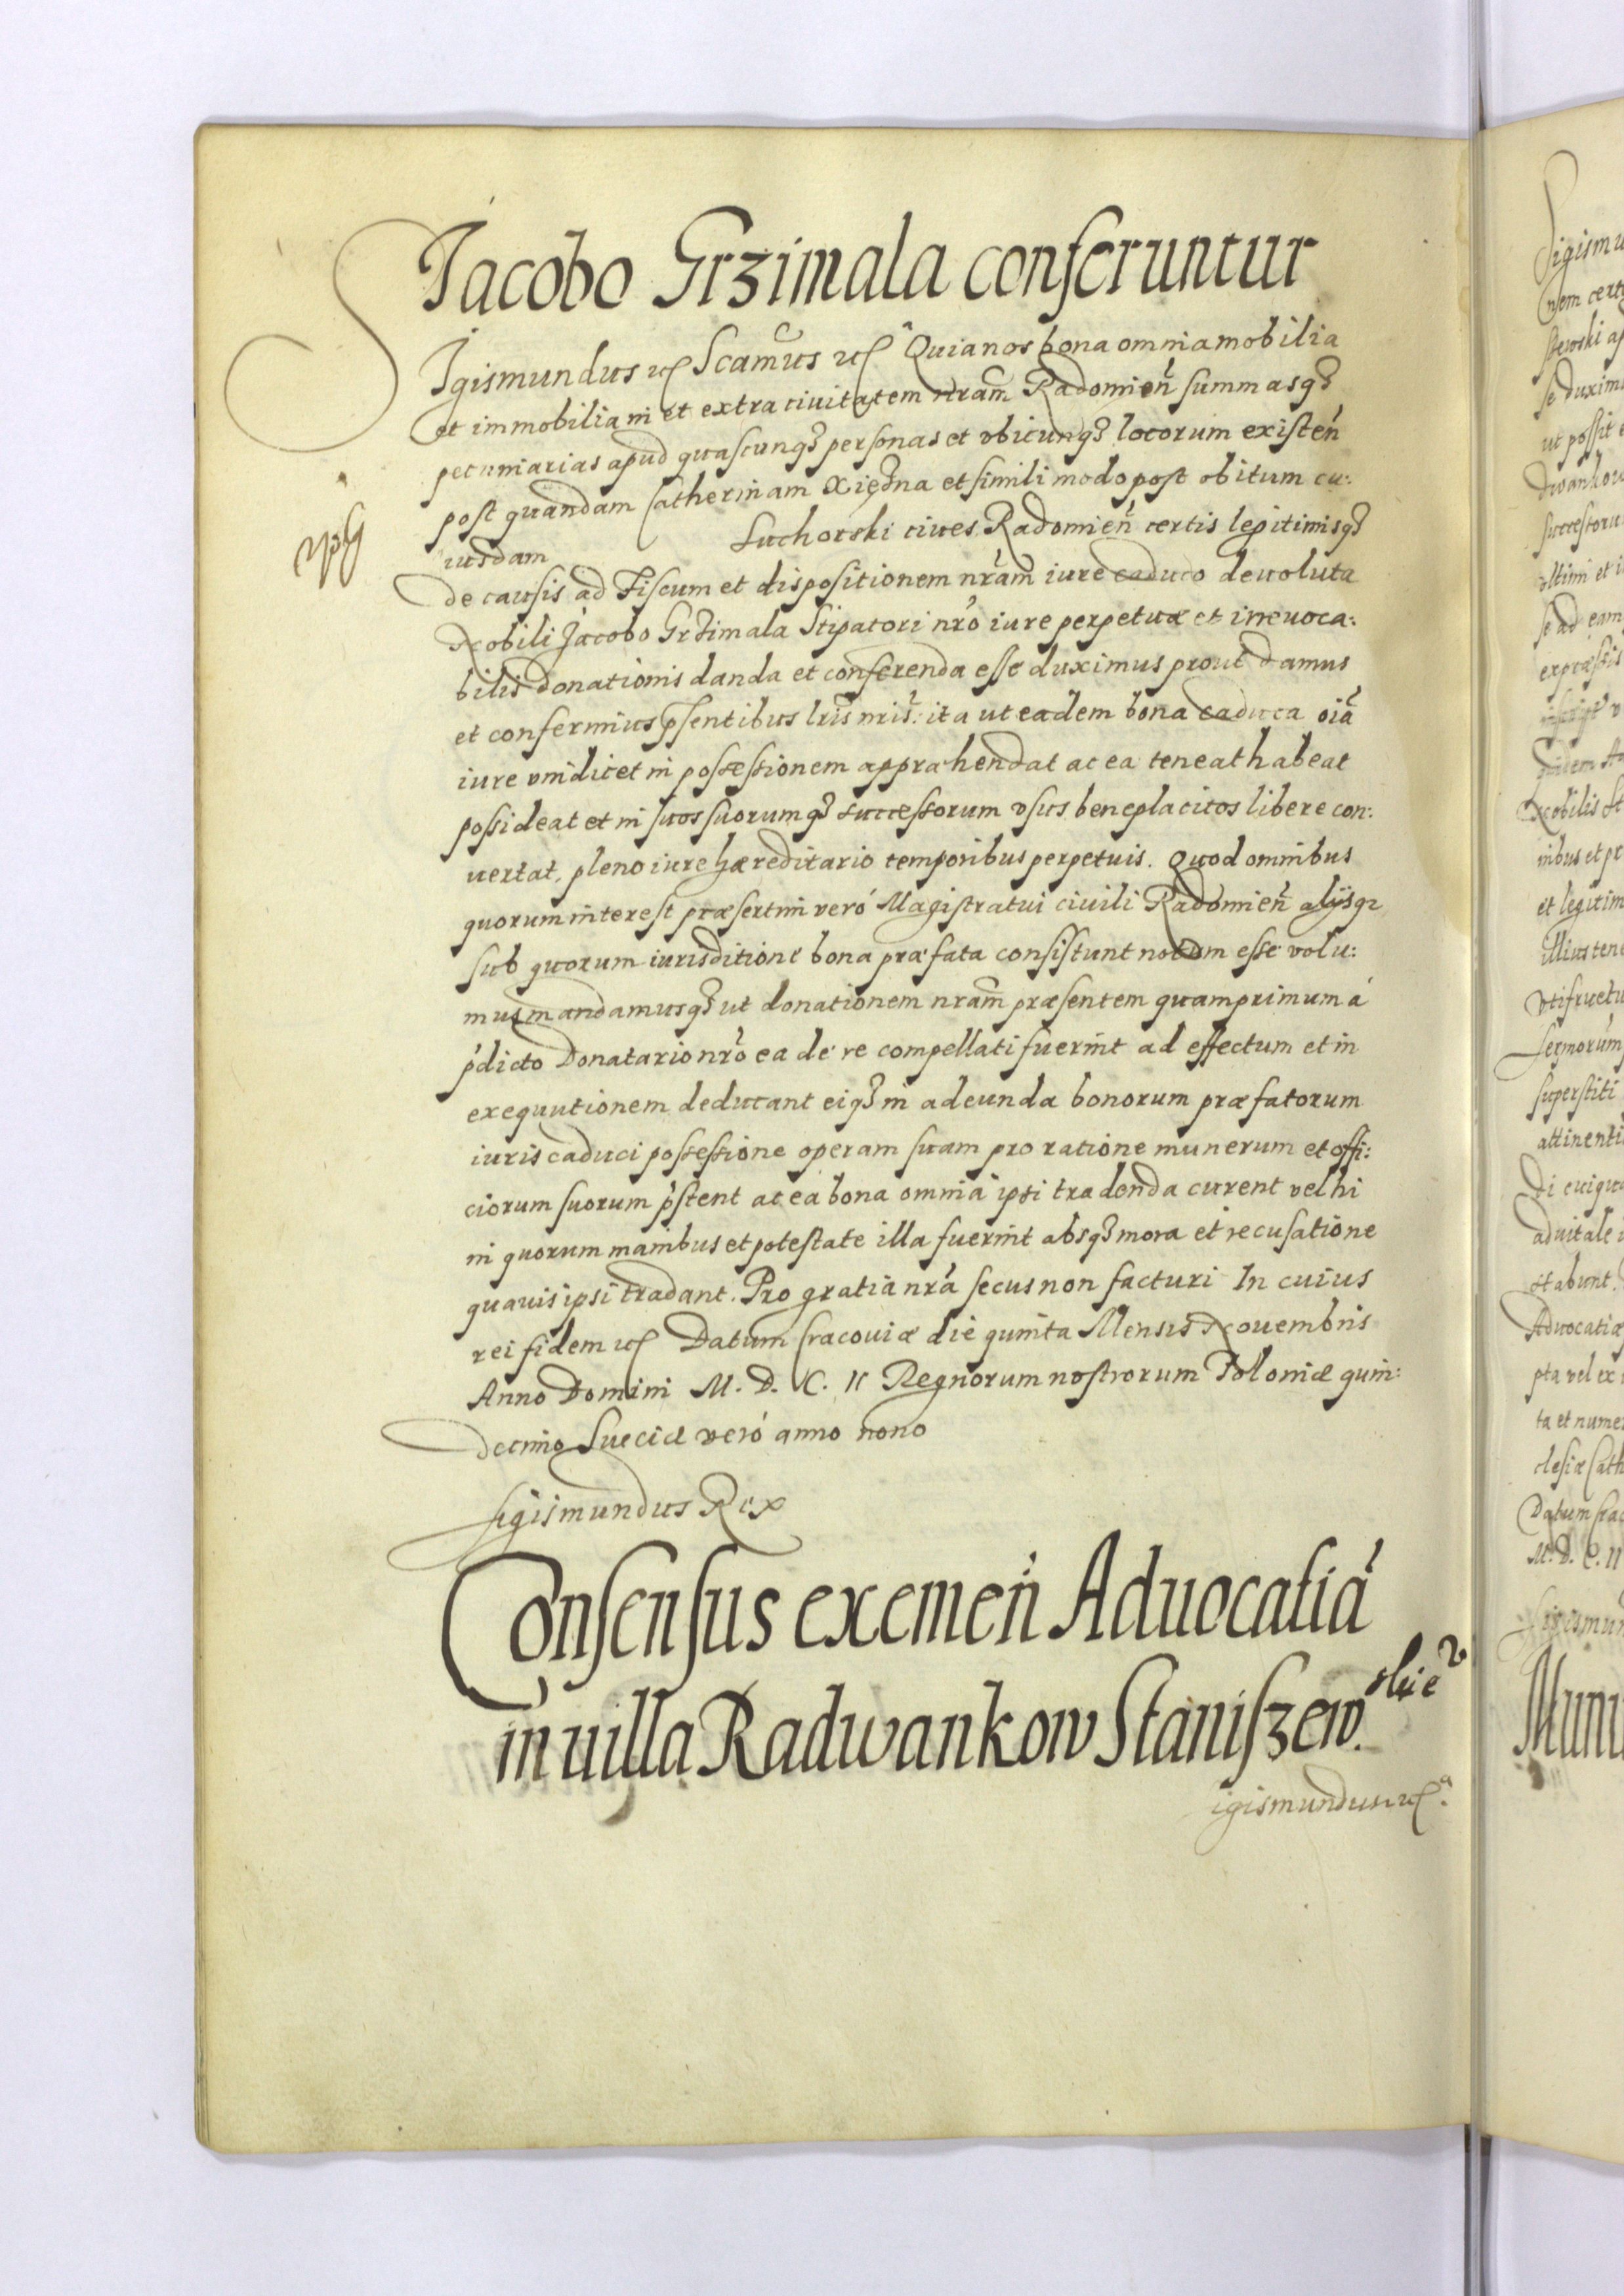 Jacobo Grzimala conferuntur
Sigismundus etc Scamus etc Quia nos bona omnia mobilia
et immobilia in et extra ciuitatem nram Radomien summasq3
pecuniarias apud quascunq3 personas et vbicunq3 locorum existen
post quandam Catherinam Xiężna et simili modo post obitum cu:
iusdam Suchorski ciues Radomien certis legitimisq3
de causis ad Fiscum et dispositionem nram iure caduco deuoluta
Nobili Jacobo Grzimala Stipatori nro iure perpetuæ et irreuoca:
bilis donationis danda et conferenda esse duximus prout damus
et conferimus psentibus lris nris: ita ut eadem bona caduca oia
iure vindicet in possessionem appræhendat ac ea teneat habeat
possideat et in suos suorumq3 successorum vsus beneplacitos libere con:
uertat, pleno iure hæreditario temporibus perpetuis. Quod omnibus
quorum interest præsertim veró Magistratui ciuili Radomien alijsq3
sub quorum iurisditione bona præfata consistunt notum esse volu:
mus mandamusq3 ut donationem nram præsentem quamprimum á
pdicto Donatario nro ea de re compellati fuerint ad effectum et in
exequutionem deducant eiq3 in adeunda bonorum præfatorum
iuris caduci possessione operam suam pro ratione munerum et offi:
ciorum suorum pstent ac ea bona omnia ipsi tradenda curent vel hi
in quorum manibus et potestate illa fuerint absq3 mora et recusatione
quauis ipsi tradant. Pro gratia nra secus non facturi In cuius
rei fidem etc Datum Cracouiæ die quinta Mensis Nouembris
Anno Domini M. D. C. II Regnorum nostrorum Poloniæ quin:
decimo Sueciæ veró anno nono
Sigismundus Rex
Consensus exemen Aduocatiá
in uilla Radwankow Staniszew.
skie
igismundus etc